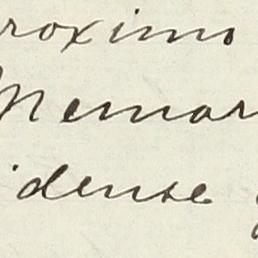 roximo
Memor
idense